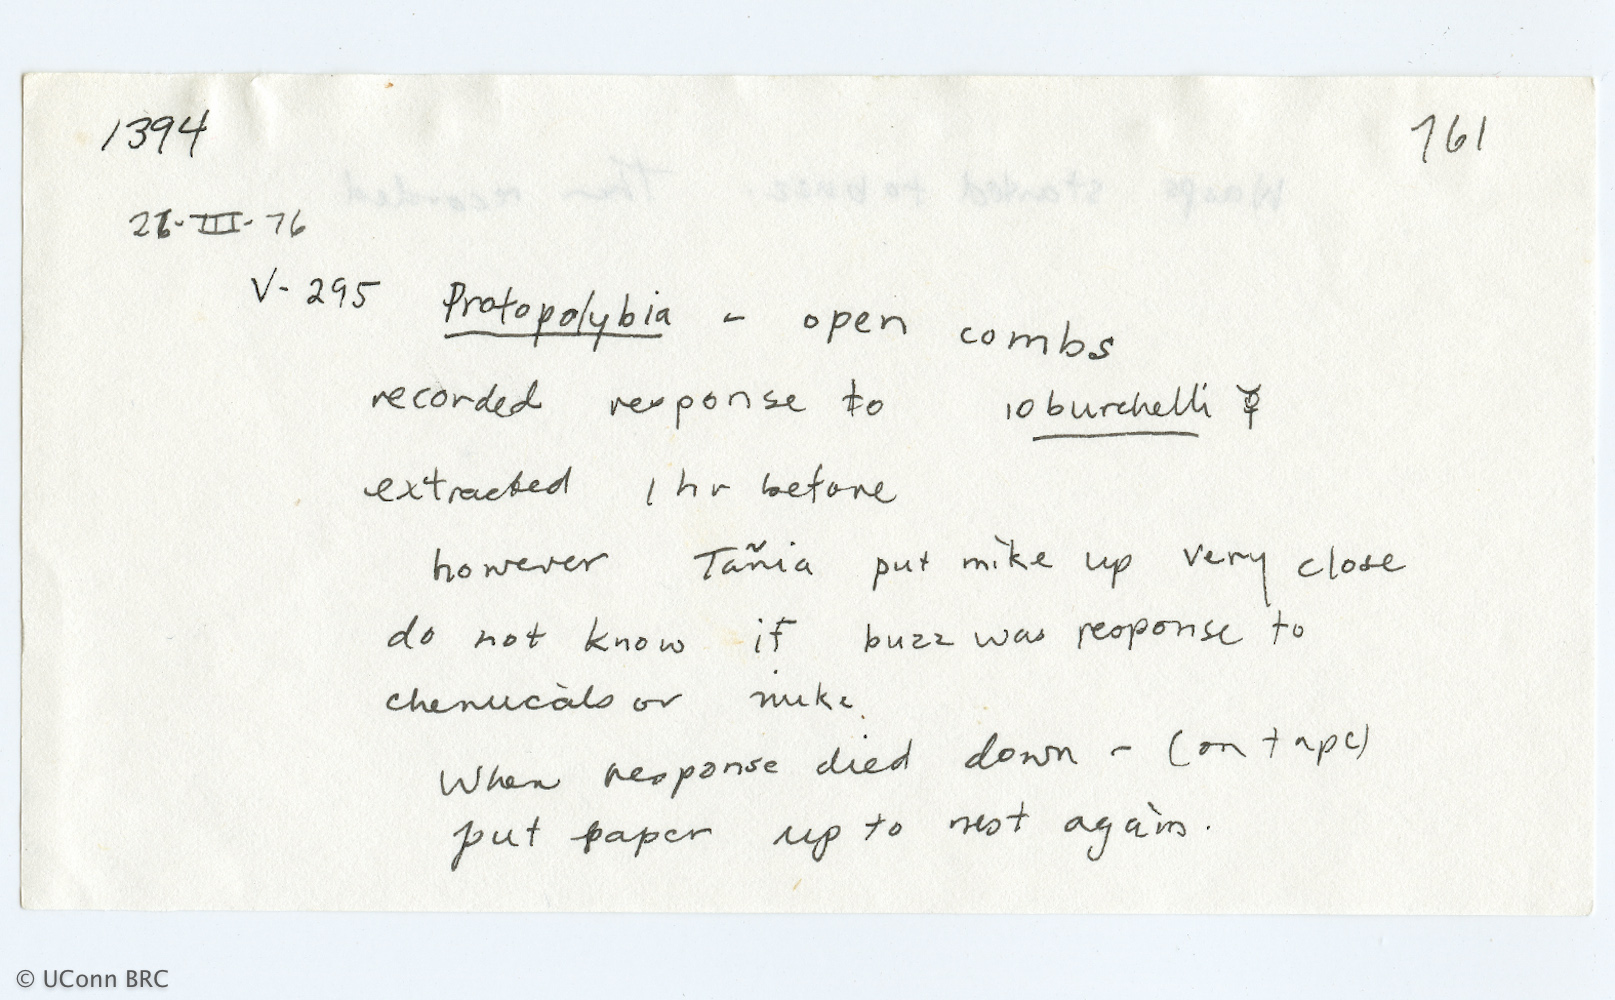 1394 761
III-76
V-295 Protopolybia - open combs
recorded response to 10 burchelli ☿
extracted 1 hr before
however Tañia put mike up very close
do not know if buzz was response to
chemicals or mike.
When response died down - (on tape)
put paper up to nest again.
Wasps started to buzz. Then recorded
© UConn BRC